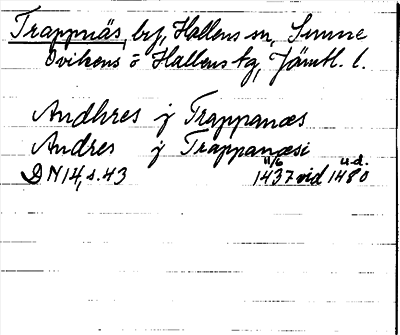 Trappnäs, by, Hallens sn, Sunne
Ovikens o Hallens tg, Jämtl. l.
Andhres j Trappanæs
Andres j Trappanæsi
DN 14, s. 43 11/6 1437 vid 1480 u.d.